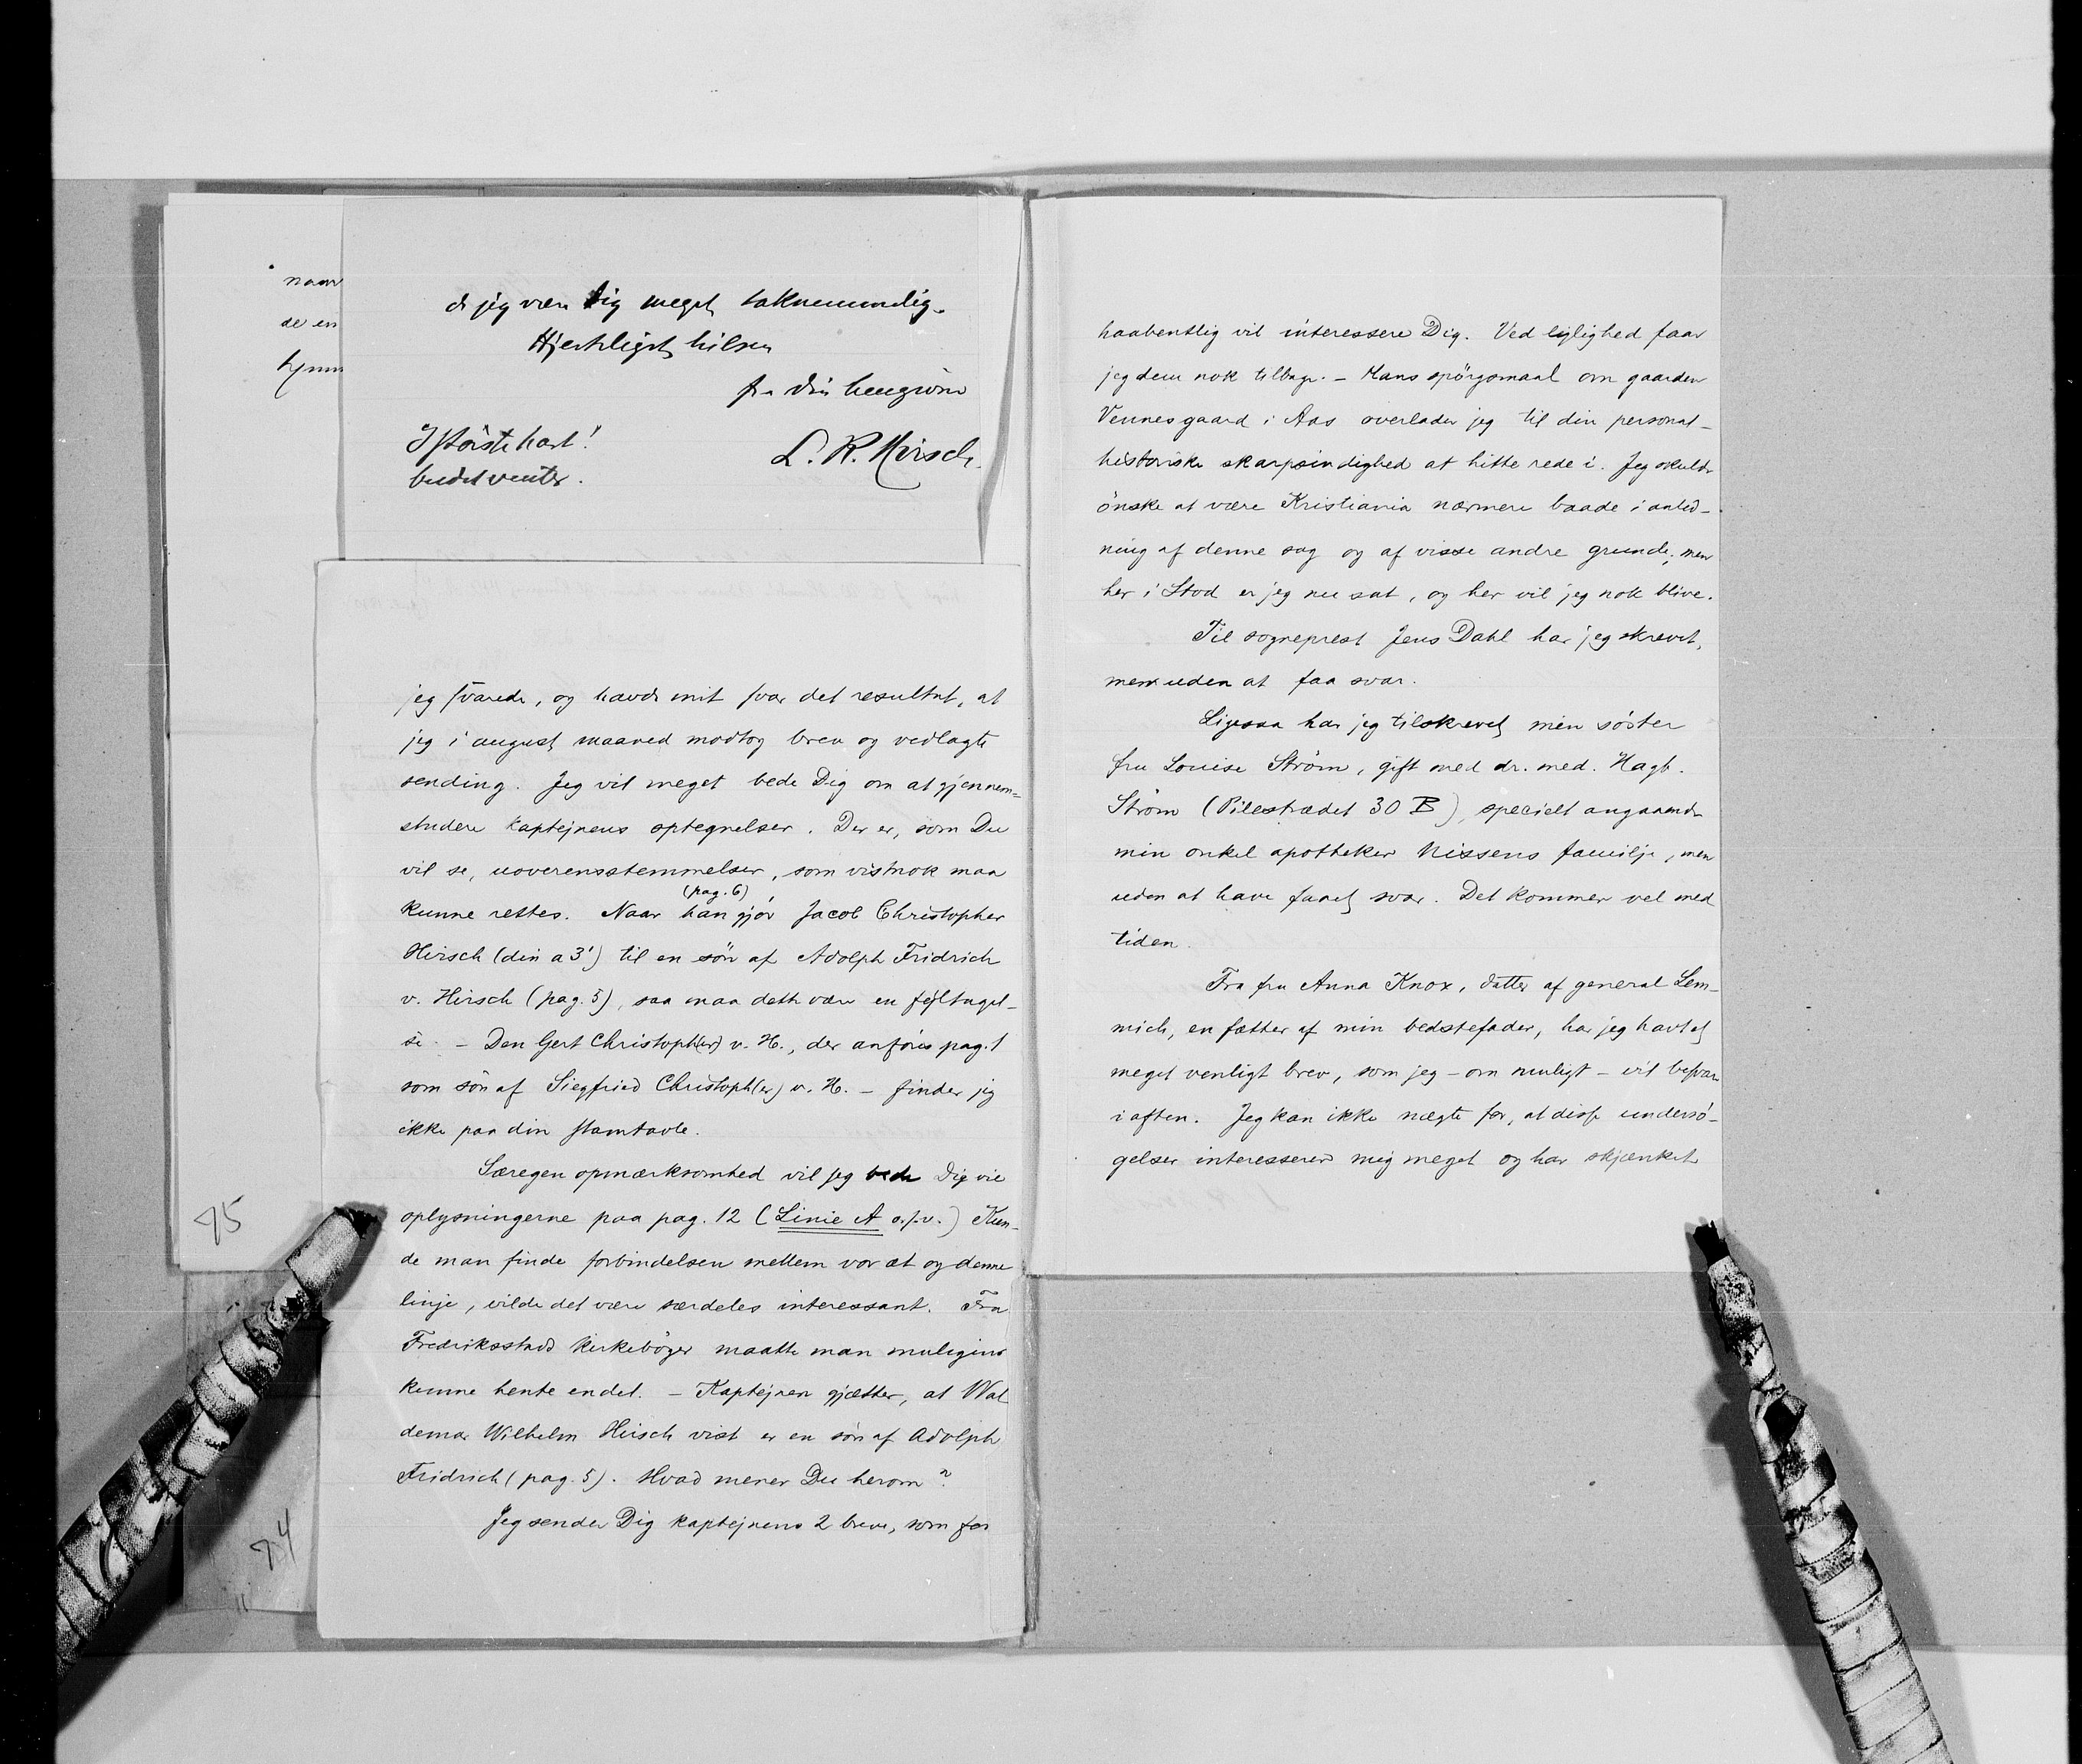 naar
de en
hjem
de jeg være Dig meget taknemmelig.
Hjerteligst hilsen
fra din hengivne
I største hast!
L. R. Hirsch.
budet venter.
jeg svarede, og havde mit svar det resultat, at
jeg i august maaned modtog brev og vedlagte
sending. Jeg vil meget bede Dig om at gjennem=
studere kaptejnens optegnelser. Der er, som Du
vil se, uoverensstemmelser, som vistnok maa
(pag. 6)
kunne rettes. Naar han gjør Jacob Christopher
Hirsch (din a 3') til en søn af Adolph Fridrich
v. Hirsch (pag. 5), saa maa dette være en fejltagel-
se. – Den Gert Christoph(er) v. H., der anføres pag. 1
som søn af Siegfried Christoph(er) v. H. – finder jeg
ikke paa din stamtavle.
Særegen opmærksomhed vil jeg bede Dig vie
oplysningerne paa pag. 12 (Linie A o.s.v.) Kun-
de man finde forbindelsen mellem vor æt og denne
linje, vilde det være særdeles interessant. Fra
Fredriksstads kirkebøger maatte man muligens
kunne hente endel. – Kaptejnen gjætter, at Wal
demar Wilhelm Hirsch vist er en søn af Adolph
Fridrich (pag. 5). Hvad mener Du herom?
Jeg sender Dig kaptejnens 2 breve, som for
75
74
haabentlig vil interessere Dig. Ved lejlighed faar
jeg dem nok tilbage. – Hans spørgsmaal om gaarden
Vennesgaard i Aas overlader jeg til din personal-
historiske skarpsindighed at hitte rede i. Jeg skulde
ønske at være Kristiania nærmere baade i anled-
ning af denne sag og af visse andre grunde; men
her i Stod er jeg nu sat, og her vil jeg nok blive.
Til sogneprest Jens Dahl har jeg skrevet,
men uden at faa svar.
Ligesaa har jeg tilskrevet min søster
fru Louise Strøm, gift med dr. med. Hagb.
Strøm (Pilestrædet 30 B), specielt angaaende
min onkel apotheker Nissens familje, men
uden at have faaet svar. Det kommer vel med
tiden.
Fra fru Anna Knox, datter af general Lem-
mich, en fætter af min bedstefader, har jeg havt et
meget venligt brev, som jeg – om muligt – vil besvare
i aften. Jeg kan ikke nægte for, at disse undersø-
gelser interesserer mig meget og har skjænket